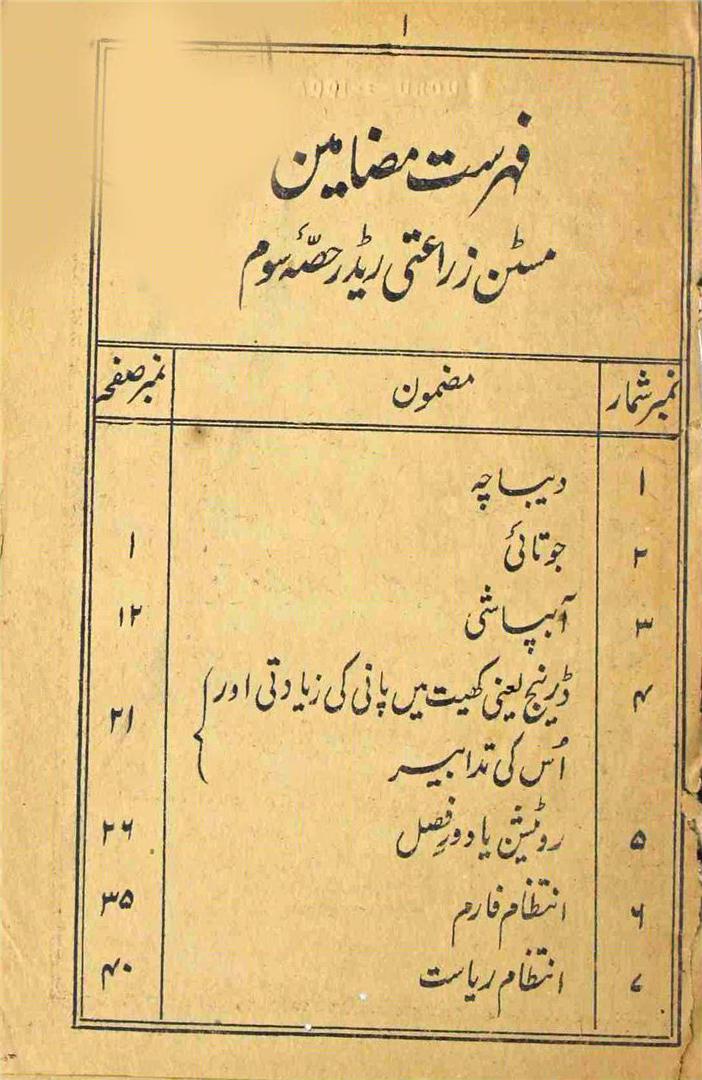 ۱
فہرست مضامین
مسٹن زراعتی ریڈر حصّہ سوم
نمبر شمار مضمون نمبر صفحہ
۱ دیباچہ
۲ جوتائی ۱
۳ آبپاشی ۱۲
۴ ڈرینج یعنی کھیت میں پانی کی زیادتی اور
اُس کی تدابیر ۲۱
۵ روٹیشن یا دورِ فصل ۲۶
۶ انتظام فارم ۳۵
۷ انتظام ریاست ۴۰